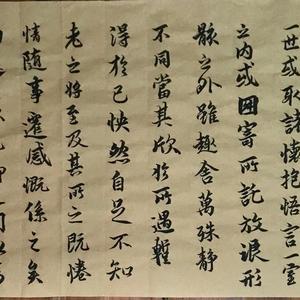 一世或取諸懷抱悟言一室
之内或因寄所託放浪形
骸之外雖趣舍萬殊靜
不同當其欣於所遇蹔
得於己怏然自足不知
老之將至及其所之既惓
情隨事遷感慨係之矣